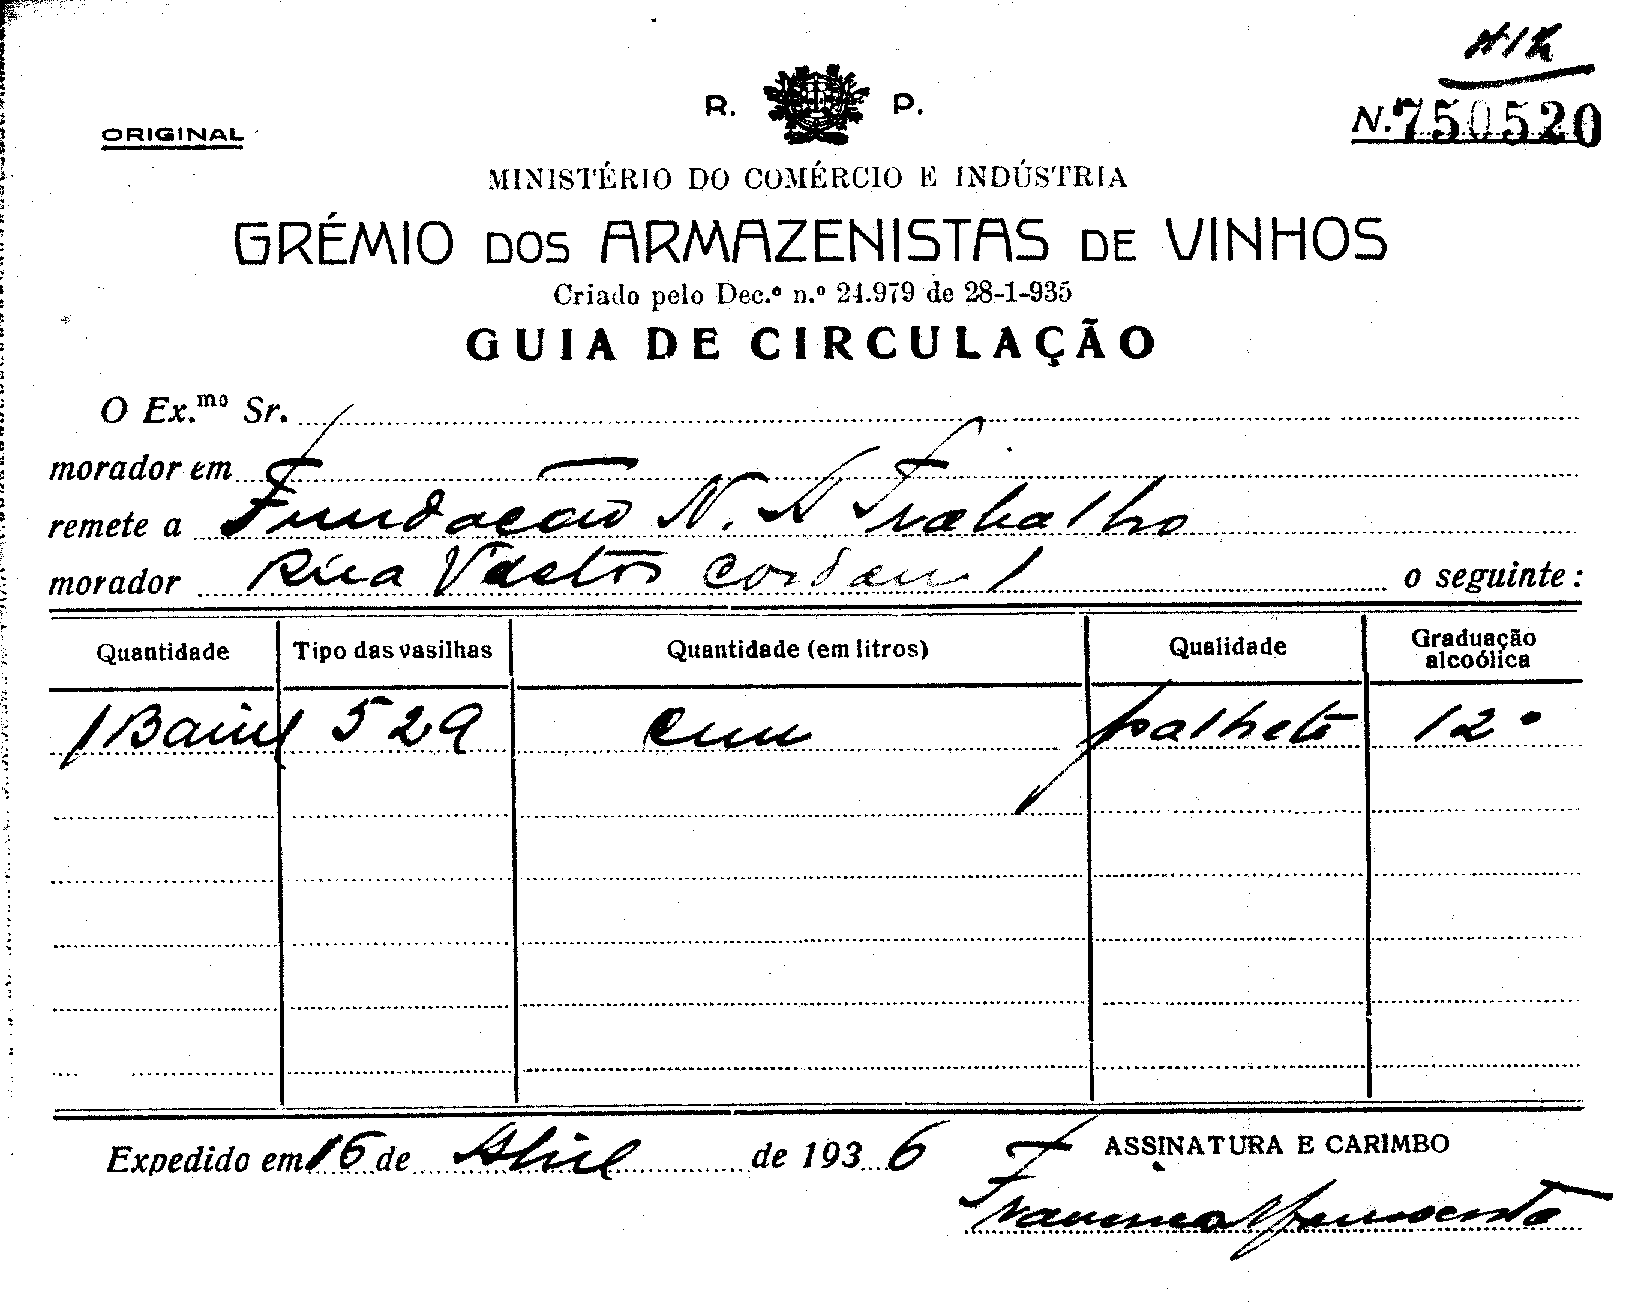 ORIGINAL
R. P.
N.º 750520
MINISTÉRIO DO COMÉRCIO E INDÚSTRIA
GRÉMIO DOS ARMAZENISTAS DE VINHOS
Criado pelo Dec.º n.º 24.979 de 28-1-935
GUIA DE CIRCULAÇÃO
O Ex.mo Sr.
morador em
remete a Fundação N. A Trabalho
morador Rua o seguinte:
Quantidade Tipo das vasilhas Quantidade (em litros) Qualidade Graduação alcoólica
1 Barril 529 Cem palheto 12º
Expedido em 16 de Abril de 1936
ASSINATURA E CARIMBO